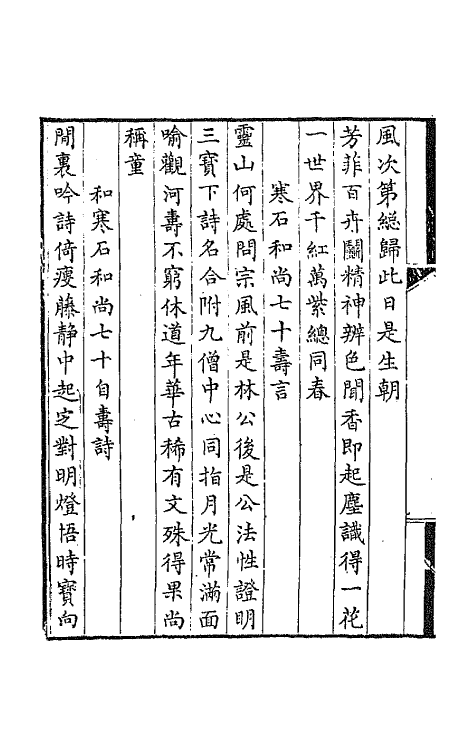 風次第總歸此日是生朝
芳菲百卉鬭精神辨色聞香即起塵識得一花
一世界千紅萬紫總同春
寒石和尚七十壽言
靈山何處問宗風前是林公後是公法性證明
三寶下詩名合附九僧中心同指月光常滿面
喻觀河壽不窮休道年華古稀有文殊得果尚
稱童
和寒石和尚七十自壽詩
閒裏吟詩倚瘦藤靜中起定對明燈悟時寶向